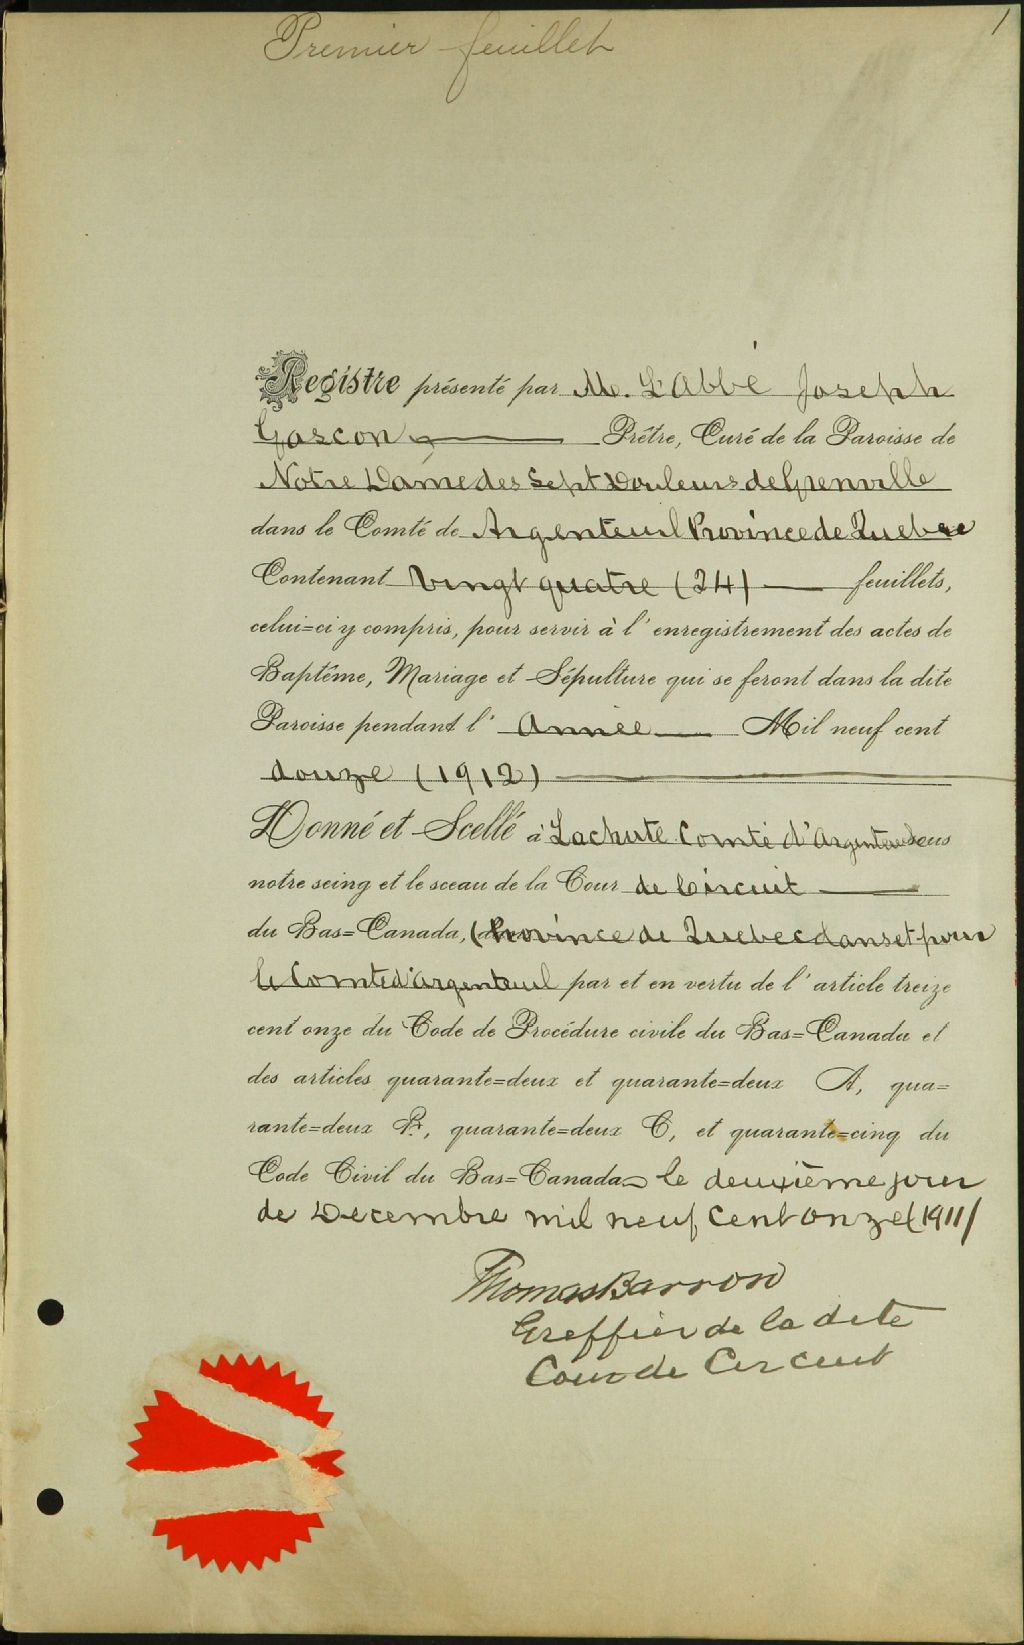 Premier feuillet
1
Registre présenté par Mr. L'Abbé Joseph
Gascon Prêtre, Curé de la Paroisse de
Notre Dame des Sept Douleurs de Grenville
dans le Comté de Argenteuil Province de Quebec
Contenant Vingt quatre (24) feuillets,
celui=ci y compris, pour servir à l'enregistrement des actes de
Baptême, Mariage et Sépulture qui se feront dans la dite
Paroisse pendant l' Année Mil neuf cent
douze (1912)
Donné et Scellé à Lachute Comté d'Argenteuil sous
notre seing et le sceau de la Cour de Circuit
du Bas=Canada, (Province de Quebec dans et pour
le Comté d'argenteuil par et en vertu de l'article treize
cent onze du Code de Procédure civile du Bas=Canada et
des articles quarante=deux et quarante=deux A, qua=
rante=deux B, quarante=deux C, et quarante=cinq du
Code Civil du Bas=Canada le deuxième jour
de Decembre mil neuf cent onze (1911)
Thomas Barron
Greffier de la dite
Cour de Circuit